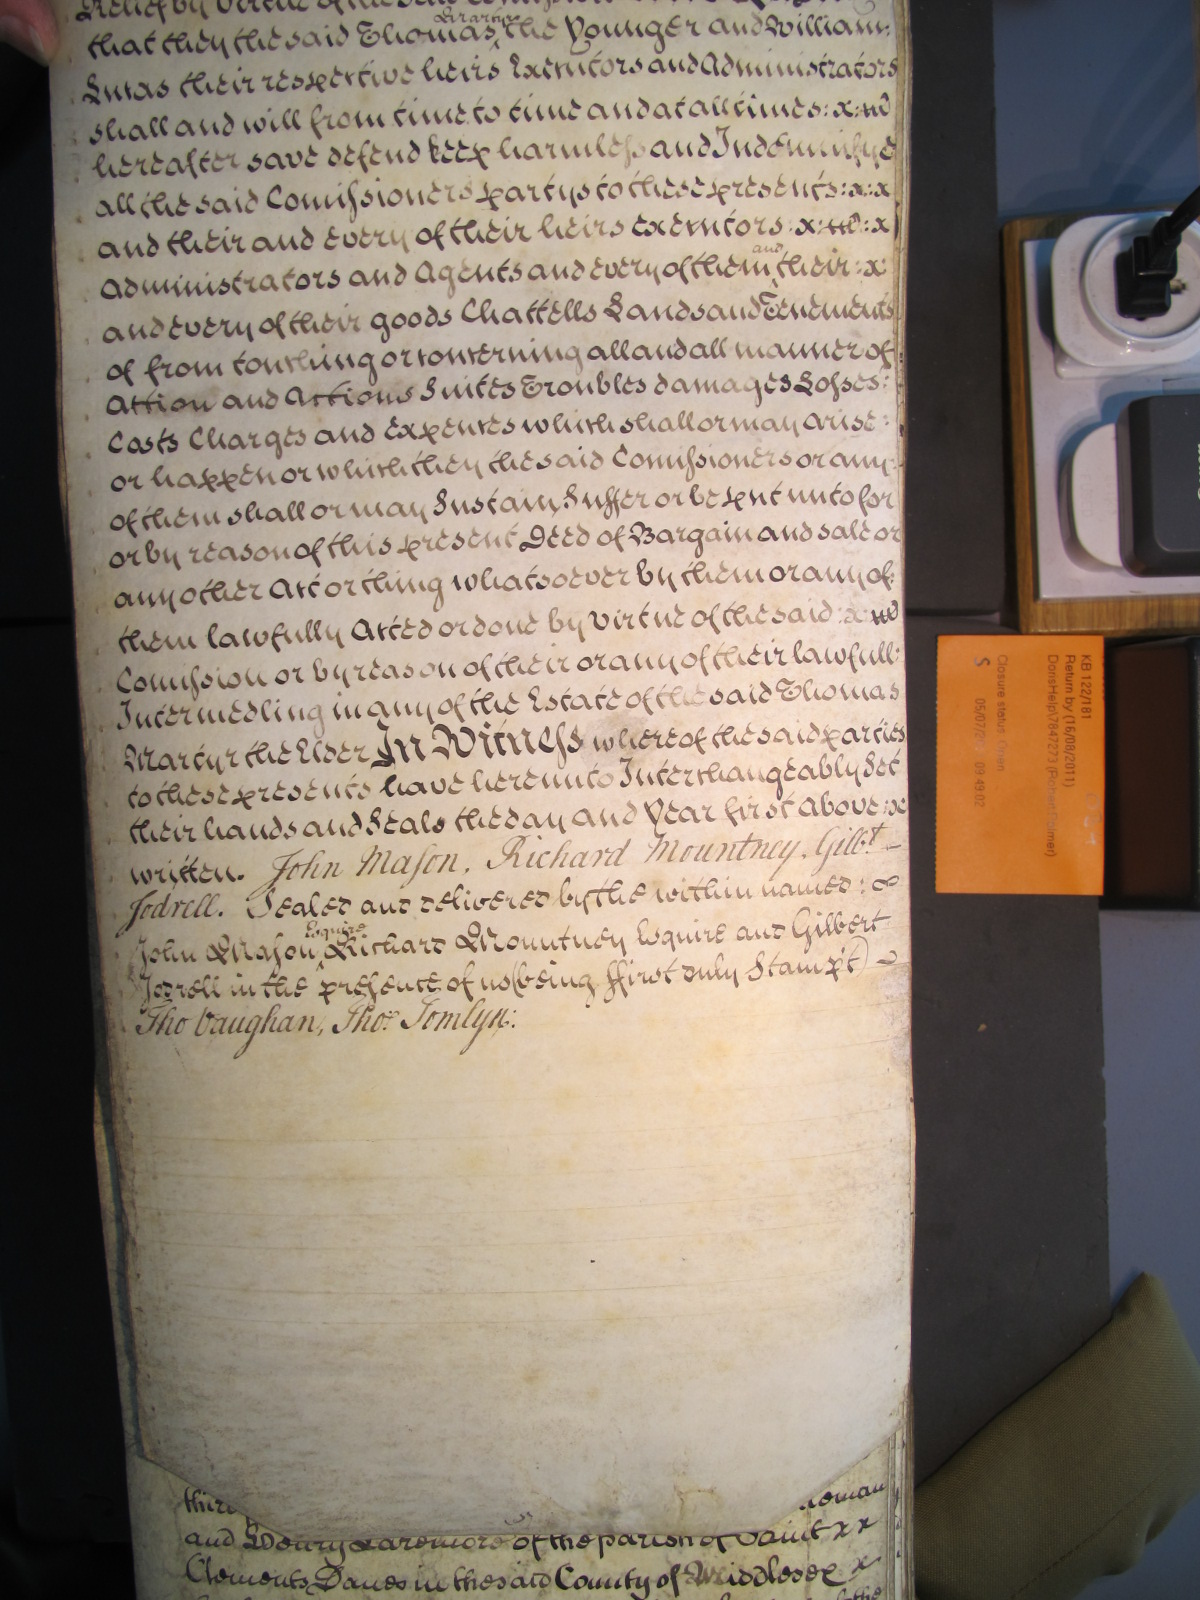 Relief by virtue of the said Comission
that they the said Thomas Martyr the Younger and William:
Lucas their respective heirs Executors and Administrators
shall and will from time to time and at all times: x:
hereafter save defend keep harmless and Indemnifye
all the said Comissioners partys to these presents: x: x
and their and every of their heirs Executors : x: :x
Administrators and Agents and every of them and their : x
and every of their goods Chattells Lands and Tenements
of from touching or concerning all and all manner of
Action and Actions Suites Troubles damages Losses:
Costs Charges and expences which shall or may arise:
or happen or which they the said Comissioners or any
of them shall or may Sustain Suffer or be put unto for
or by reason of this present Deed of Bargain and sale or
any other Act or thing whatsoever by them or any of
them lawfully Acted or done by virtue of the said : x:
Comission or by reason of their or any of their lawfull:
Intermedling in any of the Estate of the said Thomas
Martyr the Elder In Witness whereof the said parties
to these presents have hereunto Interchangeably Set
their hands and Seals the day and Year first above : x
written. John Mason, Richard Mountney, Gilbt
Jodrell. Sealed and delivered by the within named :
John Mason Esquire Richard Mountney Esquire and Gilbert
Jodrell in the presence of us (being ffirst duly Stamp't)
Tho Vaughan, Thos Tomlyn:
and Henry of the parish of Saint x x
Clements Danes in the said County of Middlesex x
KB 122/181
Return by (16/08/2011)
DorisHelp\7847273 (Robert Palmer)
Closure status: Open
S 05/07/20 09:49:02